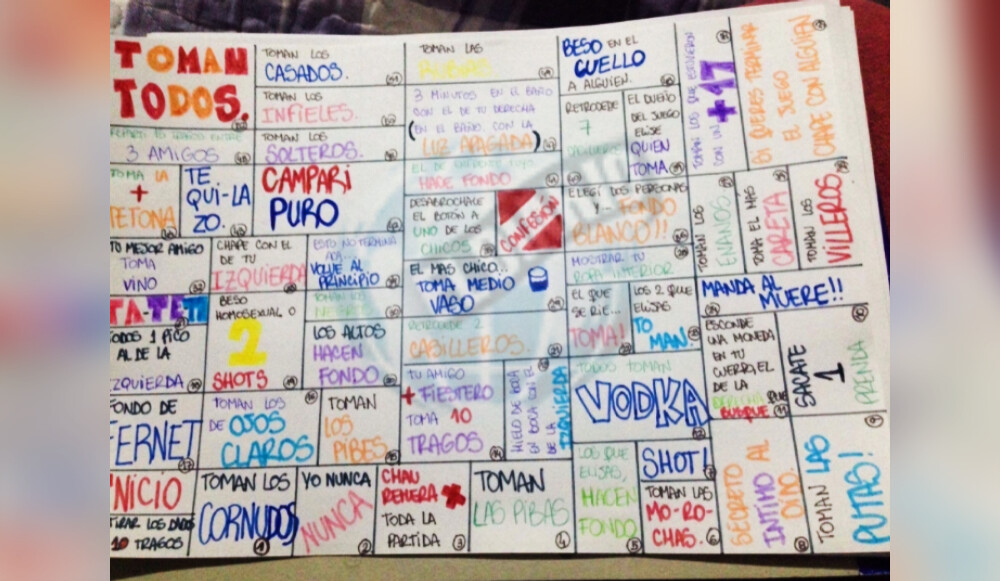 TOMAN
TODOS.
TOMAN LOS
CASADOS.
TOMAN LOS
INFIELES.
TOMAN LOS
SOLTEROS.
TOMAN LAS
RUBIAS
3 MINUTOS EN EL BAÑO
CON EL DE TU DERECHA
(EN EL BAÑO, CON LA
LUZ APAGADA)
BESO EN EL
CUELLO
A ALGUIEN.
RETROCEDE
7
CASILLEROS
EL DUEÑO
DEL JUEGO
ELISE
QUIEN
TOMA
TOMAN LOS QUE ESTUVIERON
CON UN +17
SI QUERES TERMINAR
EL JUEGO
CHAPE CON ALGUIEN
3 AMIGOS
TOMA LA
+
PETONA
TE
QUI-LA
ZO.
CAMPARI
PURO
HACE FONDO
DESABROCHALE
EL BOTÓN A
UNO DE LOS
CHICOS
CONFESIÓN
ELEGÍ DOS PERSONAS
Y... FONDO
BLANCO!!
MOSTRAR TU
ROPA INTERIOR
TOMAN LOS
ENANOS
TOMA EL MÁS
CARETA
TOMAN LOS
VILLEROS
TU MEJOR AMIGO
TOMA
VINO
CHAPE CON EL
DE TU
IZQUIERDA
ESTO NO TERMINA
ACA..
VOLVE AL
PRINCIPIO
EL MAS CHICO..
TOMA MEDIO
VASO
EL QUE
SE RIE...
TOMA!
LOS 2 QUE
ELIJAS
TO
MAN.
MANDA AL
MUERE!!
TA-TE-TI
TODOS 1 PICO
AL DE LA
IZQUIERDA
BESO
HOMOSEXUAL O
2
SHOTS
TOMAN LOS
NEGROS
LOS ALTOS
HACEN
FONDO
RETROCEDE 2
CASILLEROS.
TODOS TOMAN
VODKA
ESCONDE
UNA MONEDA
EN TU
CUERPO, EL
DE LA
DERECHA QUE
BUSQUE
11
SACATE
1
PRENDA
10
FONDO DE
FERNET
17
TOMAN LOS
DE OJOS
CLAROS
16
TOMAN
LOS
PIBES
15
TU AMIGO
+ FIESTERO
TOMA 10
TRAGOS
14
HIELO DE BOCA
EN BOCA CON EL
DE LA
IZQUIERDA
INICIO
TIRAR LOS DADOS
10 TRAGOS
TOMAN LOS
CORNUDOS
1
YO NUNCA
NUNCA
2
CHAU
REMERA
TODA LA
PARTIDA
3
TOMAN
LAS PIBAS
4
LOS QUE
ELIJAS,
HACEN
FONDO
5
SHOT!
7
TOMAN LAS
MO-RO-
CHAS.
6
SECRETO
INTIMO AL
OIDO.
8
TOMAN LAS
PUTAS!
9